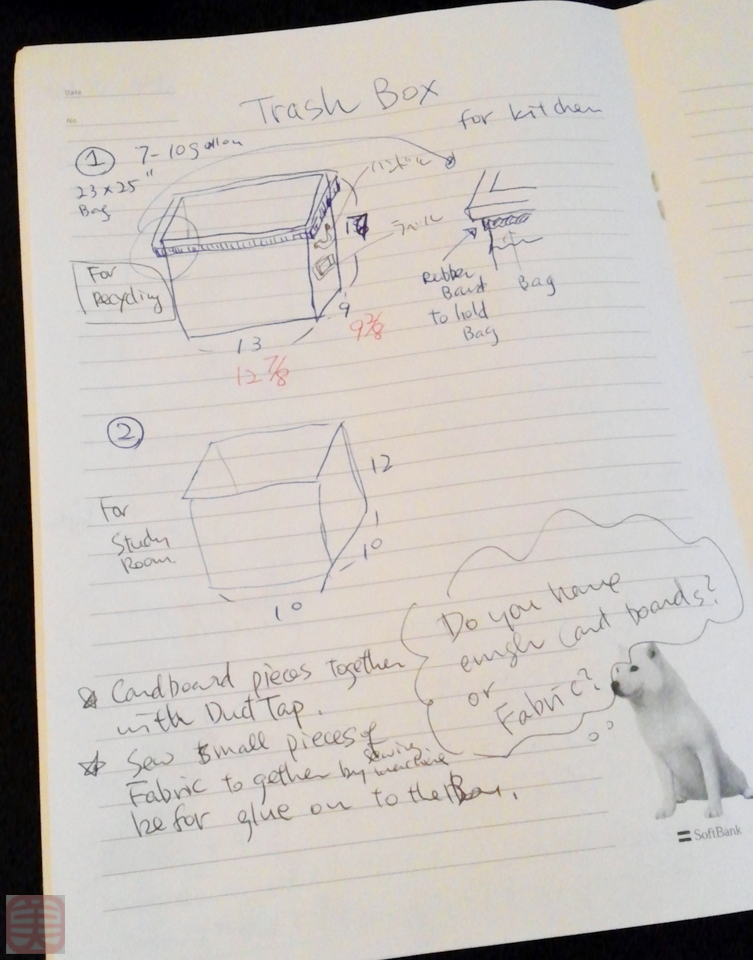 Date
No.
Trash Box
for kitchen
① 7-10 gallon
23 x 25"
Bag
ハンドル
ラベル
For
Recycling
9
9 3/8
13
12 7/8
Rubber
Band
to hold
Bag
Bag
②
For
Study
Room
12
10
10
Do you have
enugh card boards?
or
Fabric?
☆ Cardboard pieces together
with Duct Tap.
☆ Sew small pieces of
Fabric to gether by sewing machine
be for glue on to the Box.
SoftBank
美